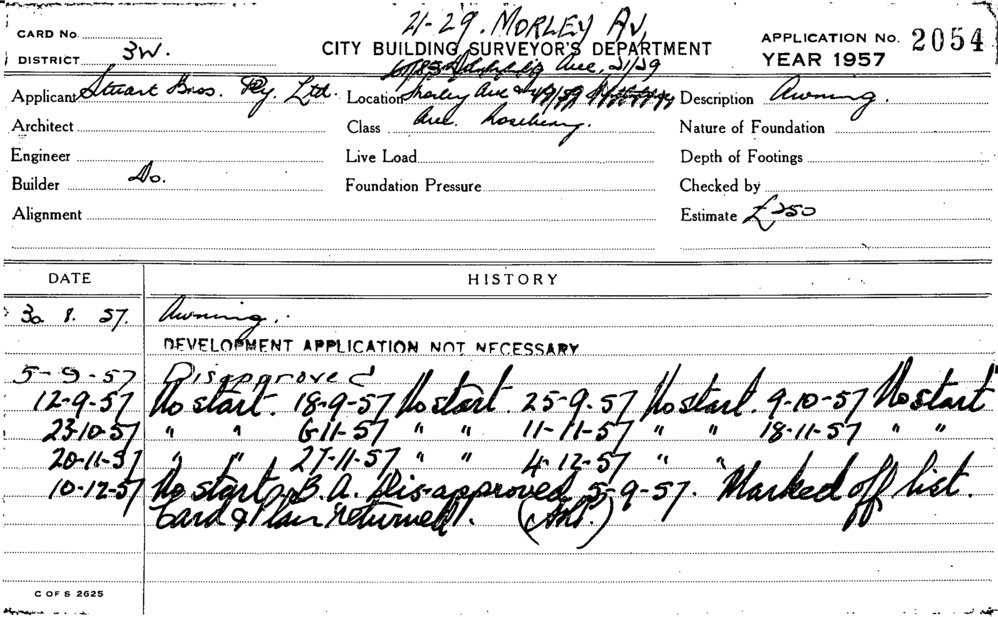 21-29. MORLEY AV,
CARD No.
CITY BUILDING SURVEYOR'S DEPARTMENT
APPLICATION No. 2054
DISTRICT 3W.
YEAR 1957
Ave, 21/29
Applicant Stuart Bros. Pty. Ltd.
Location Morley Ave &
Description Awning.
Architect
Class Ave. Rosebery.
Nature of Foundation
Engineer
Live Load
Depth of Footings
Builder Do.
Foundation Pressure
Checked by
Alignment
Estimate £250
DATE
HISTORY
30 8. 57. Awning.
DEVELOPMENT APPLICATION NOT NECESSARY
5-9-57 Disapproved
12-9-57 No start. 18-9-57 No start. 25-9-57 No start. 9-10-57 No start
23-10-57 " " 6-11-57 " " 11-11-57 " " 18-11-57 " "
20-11-57 " " 27-11-57 " " 4-12-57 " "
10-12-57 No start. B.A. Dis-approved 5-9-57. Marked off list.
Card & Plan returned.
C OF S 2625